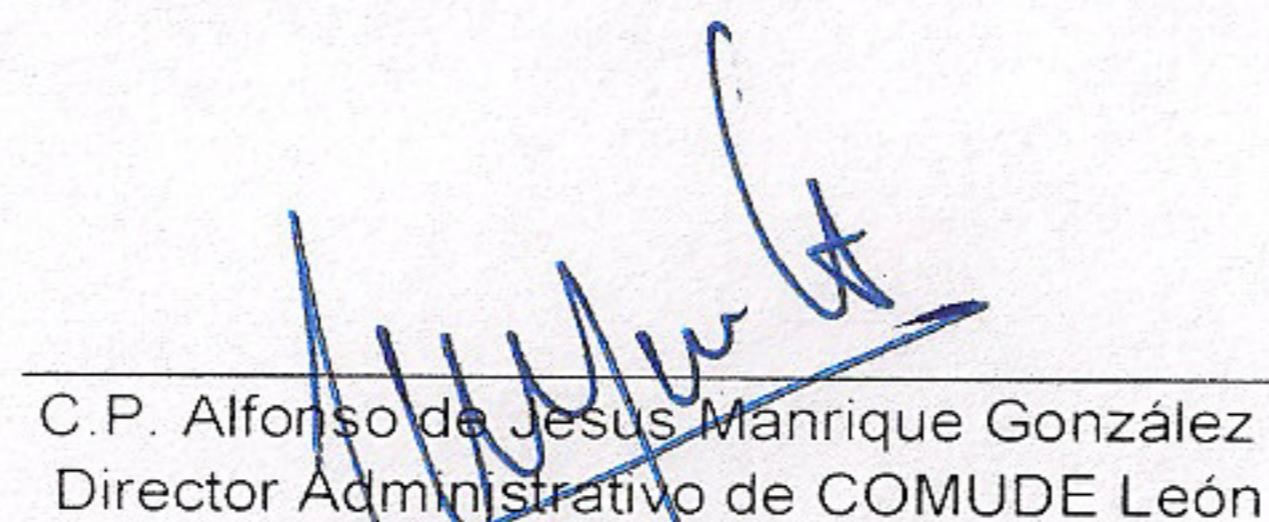 C.P. Alfonso de Jesús Manrique González
Director Administrativo de COMUDE León